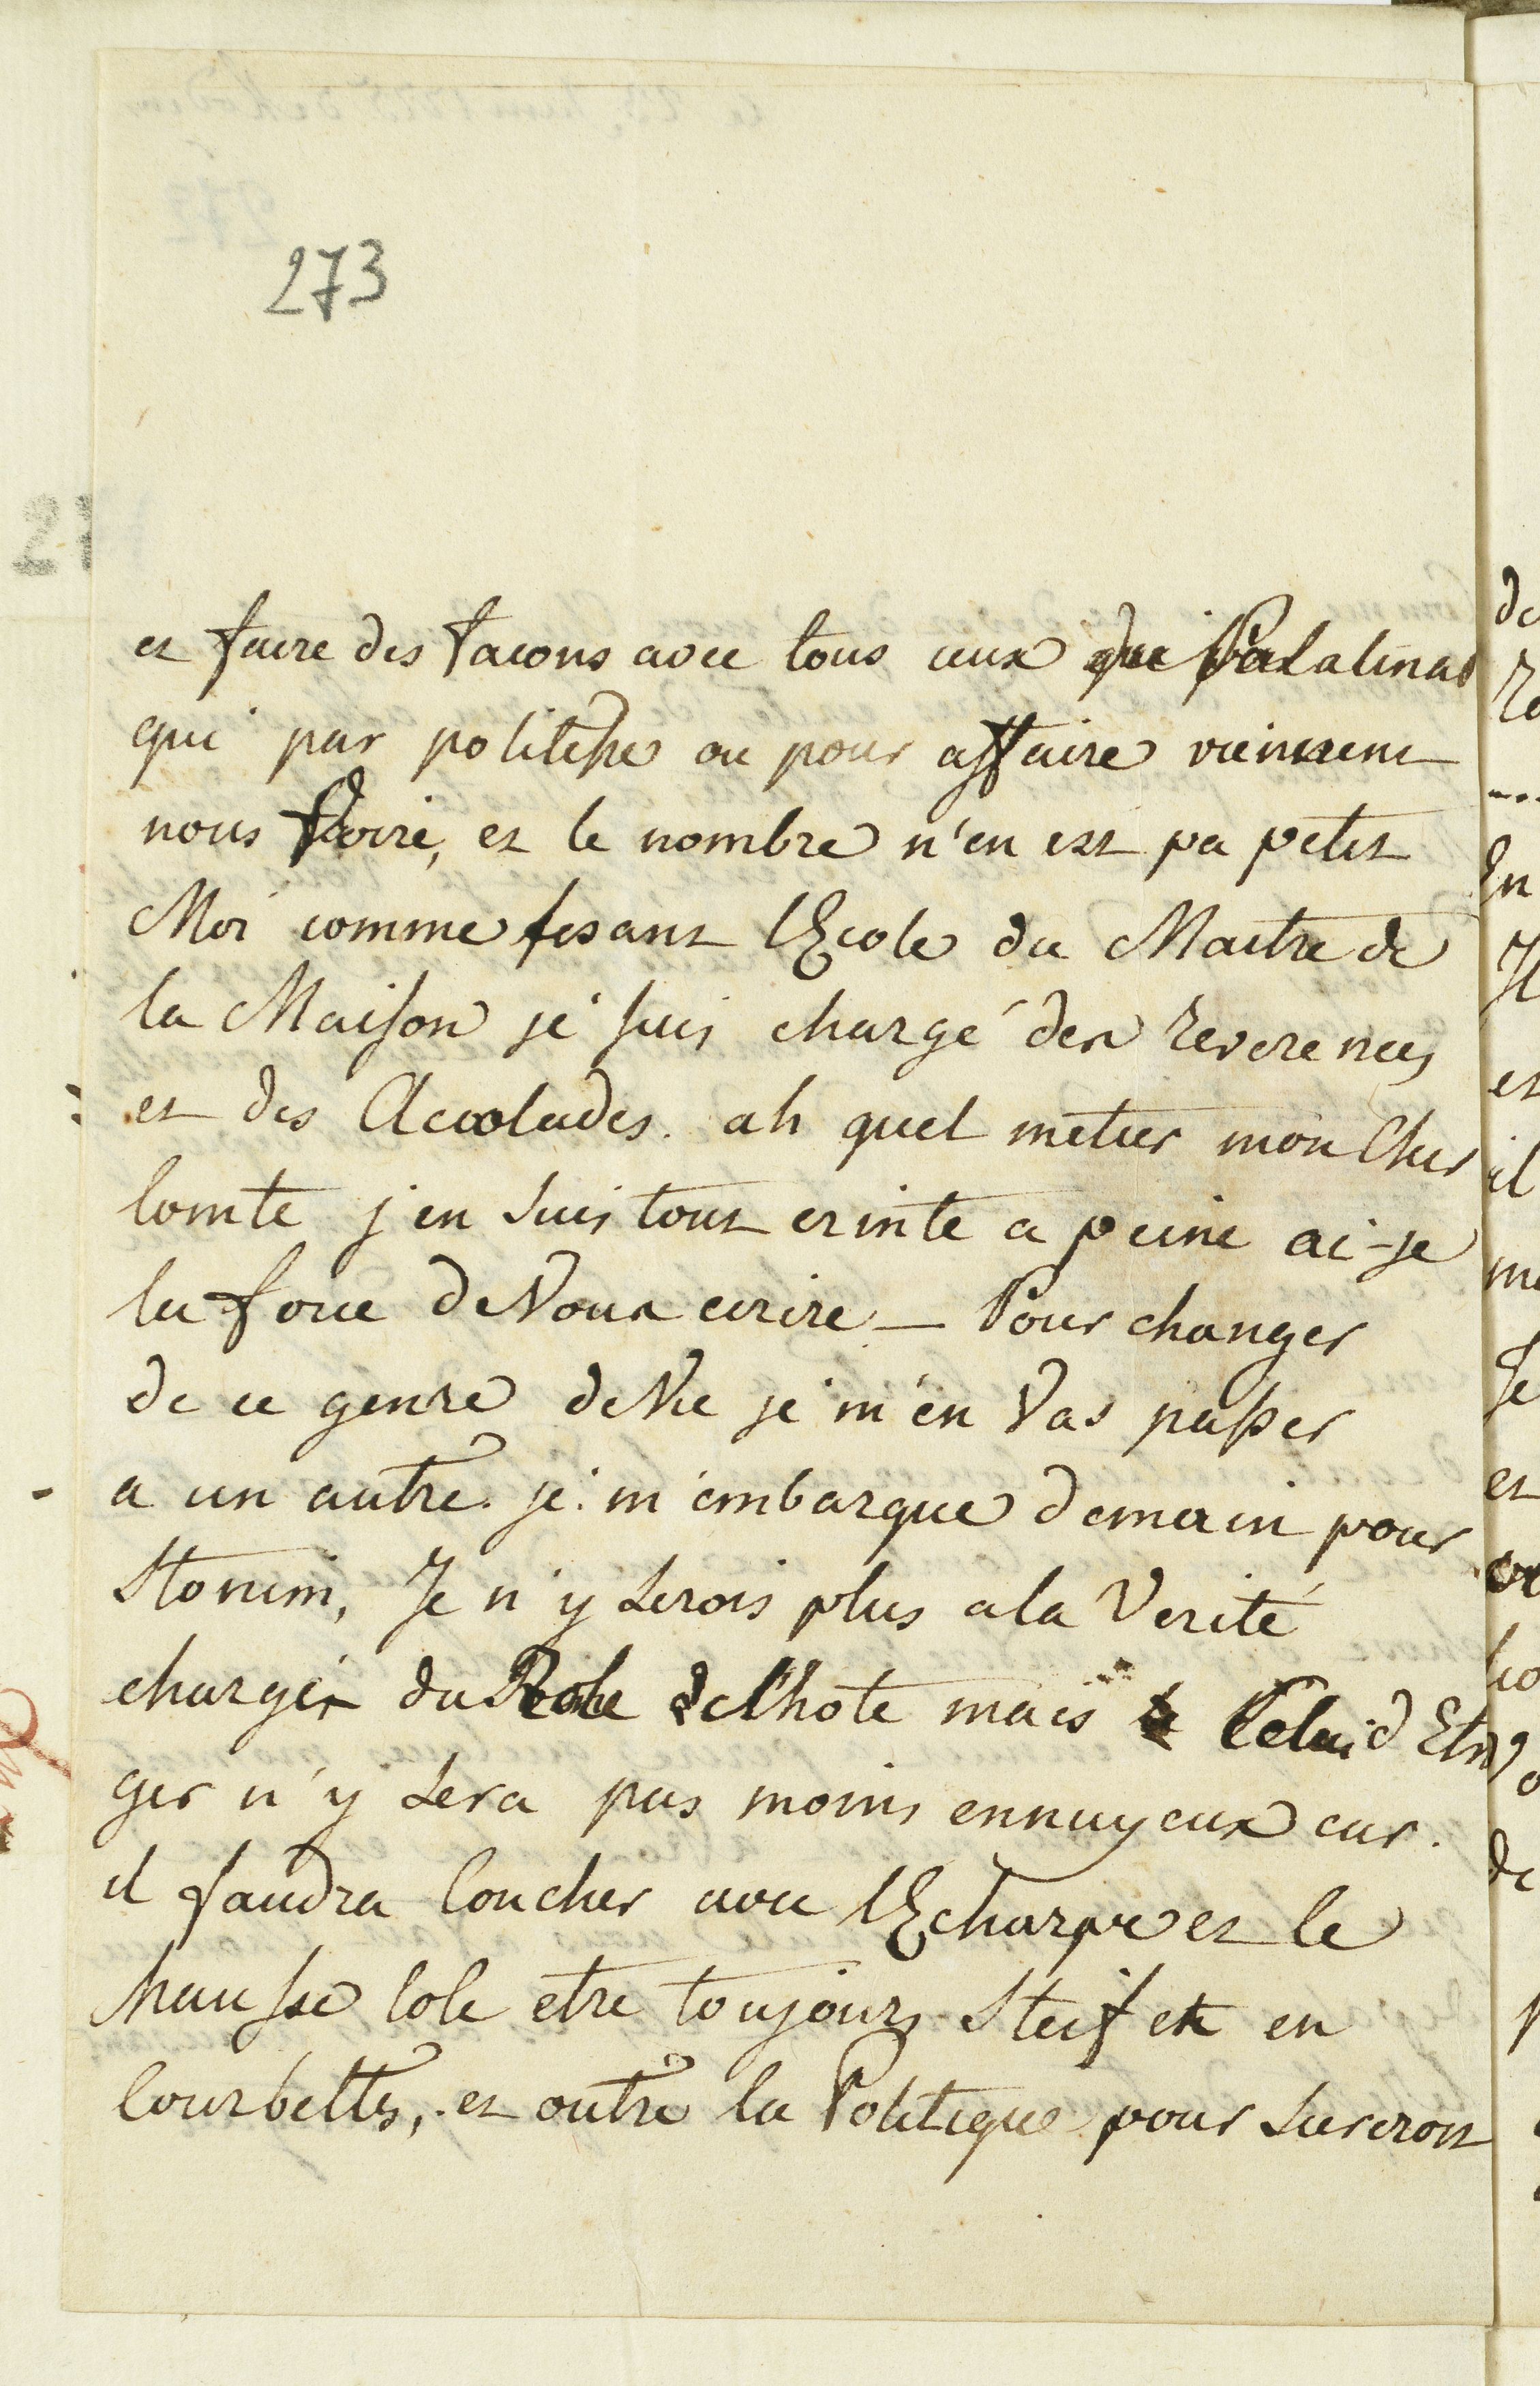 273
et faire des facons avec tous ceux du Palatinat
qui par politesse ou pour affaire viennent
nous voire, et le nombre n'en est pa petit
Moi comme fesant l'Ecole du Maitre de
la Maison je suis chargé des reverences
et des Accolades. ah quel metier mon Cher
Comte j'en suis tout erinte a peine ai-je
la force de Vous ecrire – Pour changer
de ce genre de Vie je m'en Vas passer
a un autre. je m'embarque demain pour
Slonim, Je n'y serois plus a la Verité
chargé du Role de l'hote mais Celui d'Etran
ger n'y sera pas moins ennuyeux car
il faudra Coucher avec l'Echarpe et le
hausse Cole etre toujours Steif et en
Courbettes, et outre la Politique pour surcroit